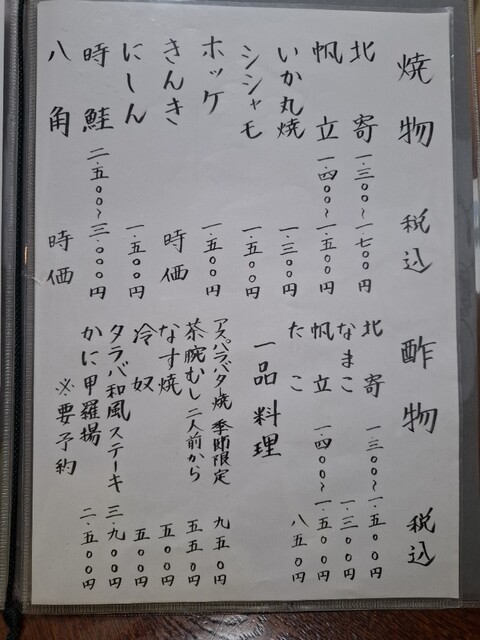 焼物 税込
北寄 一・三〇〇～一七〇〇円
帆立 一・四〇〇～一・五〇〇円
いか丸焼 一・三〇〇円
シシャモ 一・五〇〇円
ホッケ 一・五〇〇円
きんき 時価
にしん 一・五〇〇円
時鮭 二・五〇〇～三・〇〇〇円
八角 時価
酢物 税込
北寄 一三〇〇～一・五〇〇円
なまこ 一・三〇〇円
帆立 一四〇〇～一・五〇〇円
たこ 八五〇円
一品料理
アスパラバター焼 季節限定 九五〇円
茶腕むし 二人前から 五五〇円
なす焼 五〇〇円
冷奴 五〇〇円
タラバ和風ステーキ 三・九〇〇円
かに甲羅揚 二・五〇〇円
※要予約